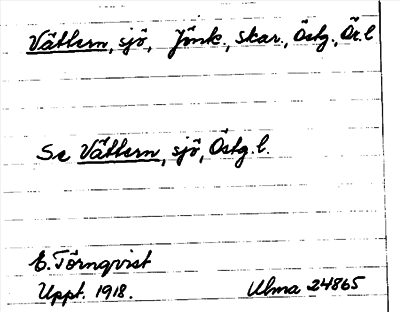 Vättern, sjö, Jönk., skar., Östg., Ör. l
Se Vättern, sjö, Östg. l.
E. Törnqvist
Uppt. 1918.
Ulma 24865